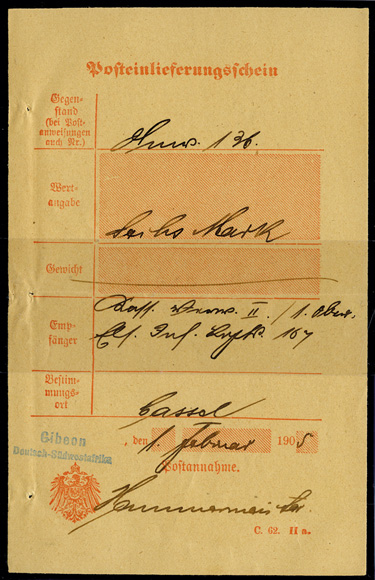 Posteinlieferungsschein
Gegen-
stand
(bei Post-
anweisungen
auch Nr.)
Anw. 136.
Wert-
angabe
Sechs Mark
Gewicht
Emp-
fänger
Kass. Verw. II. / 1. Ober.
Els. Inf. Regt. 167
Bestim-
mungs-
ort
Cassel
Gibeon
Deutsch-Südwestafrika
, den 1. Februar 1905
Postannahme.
C. 62. II a.